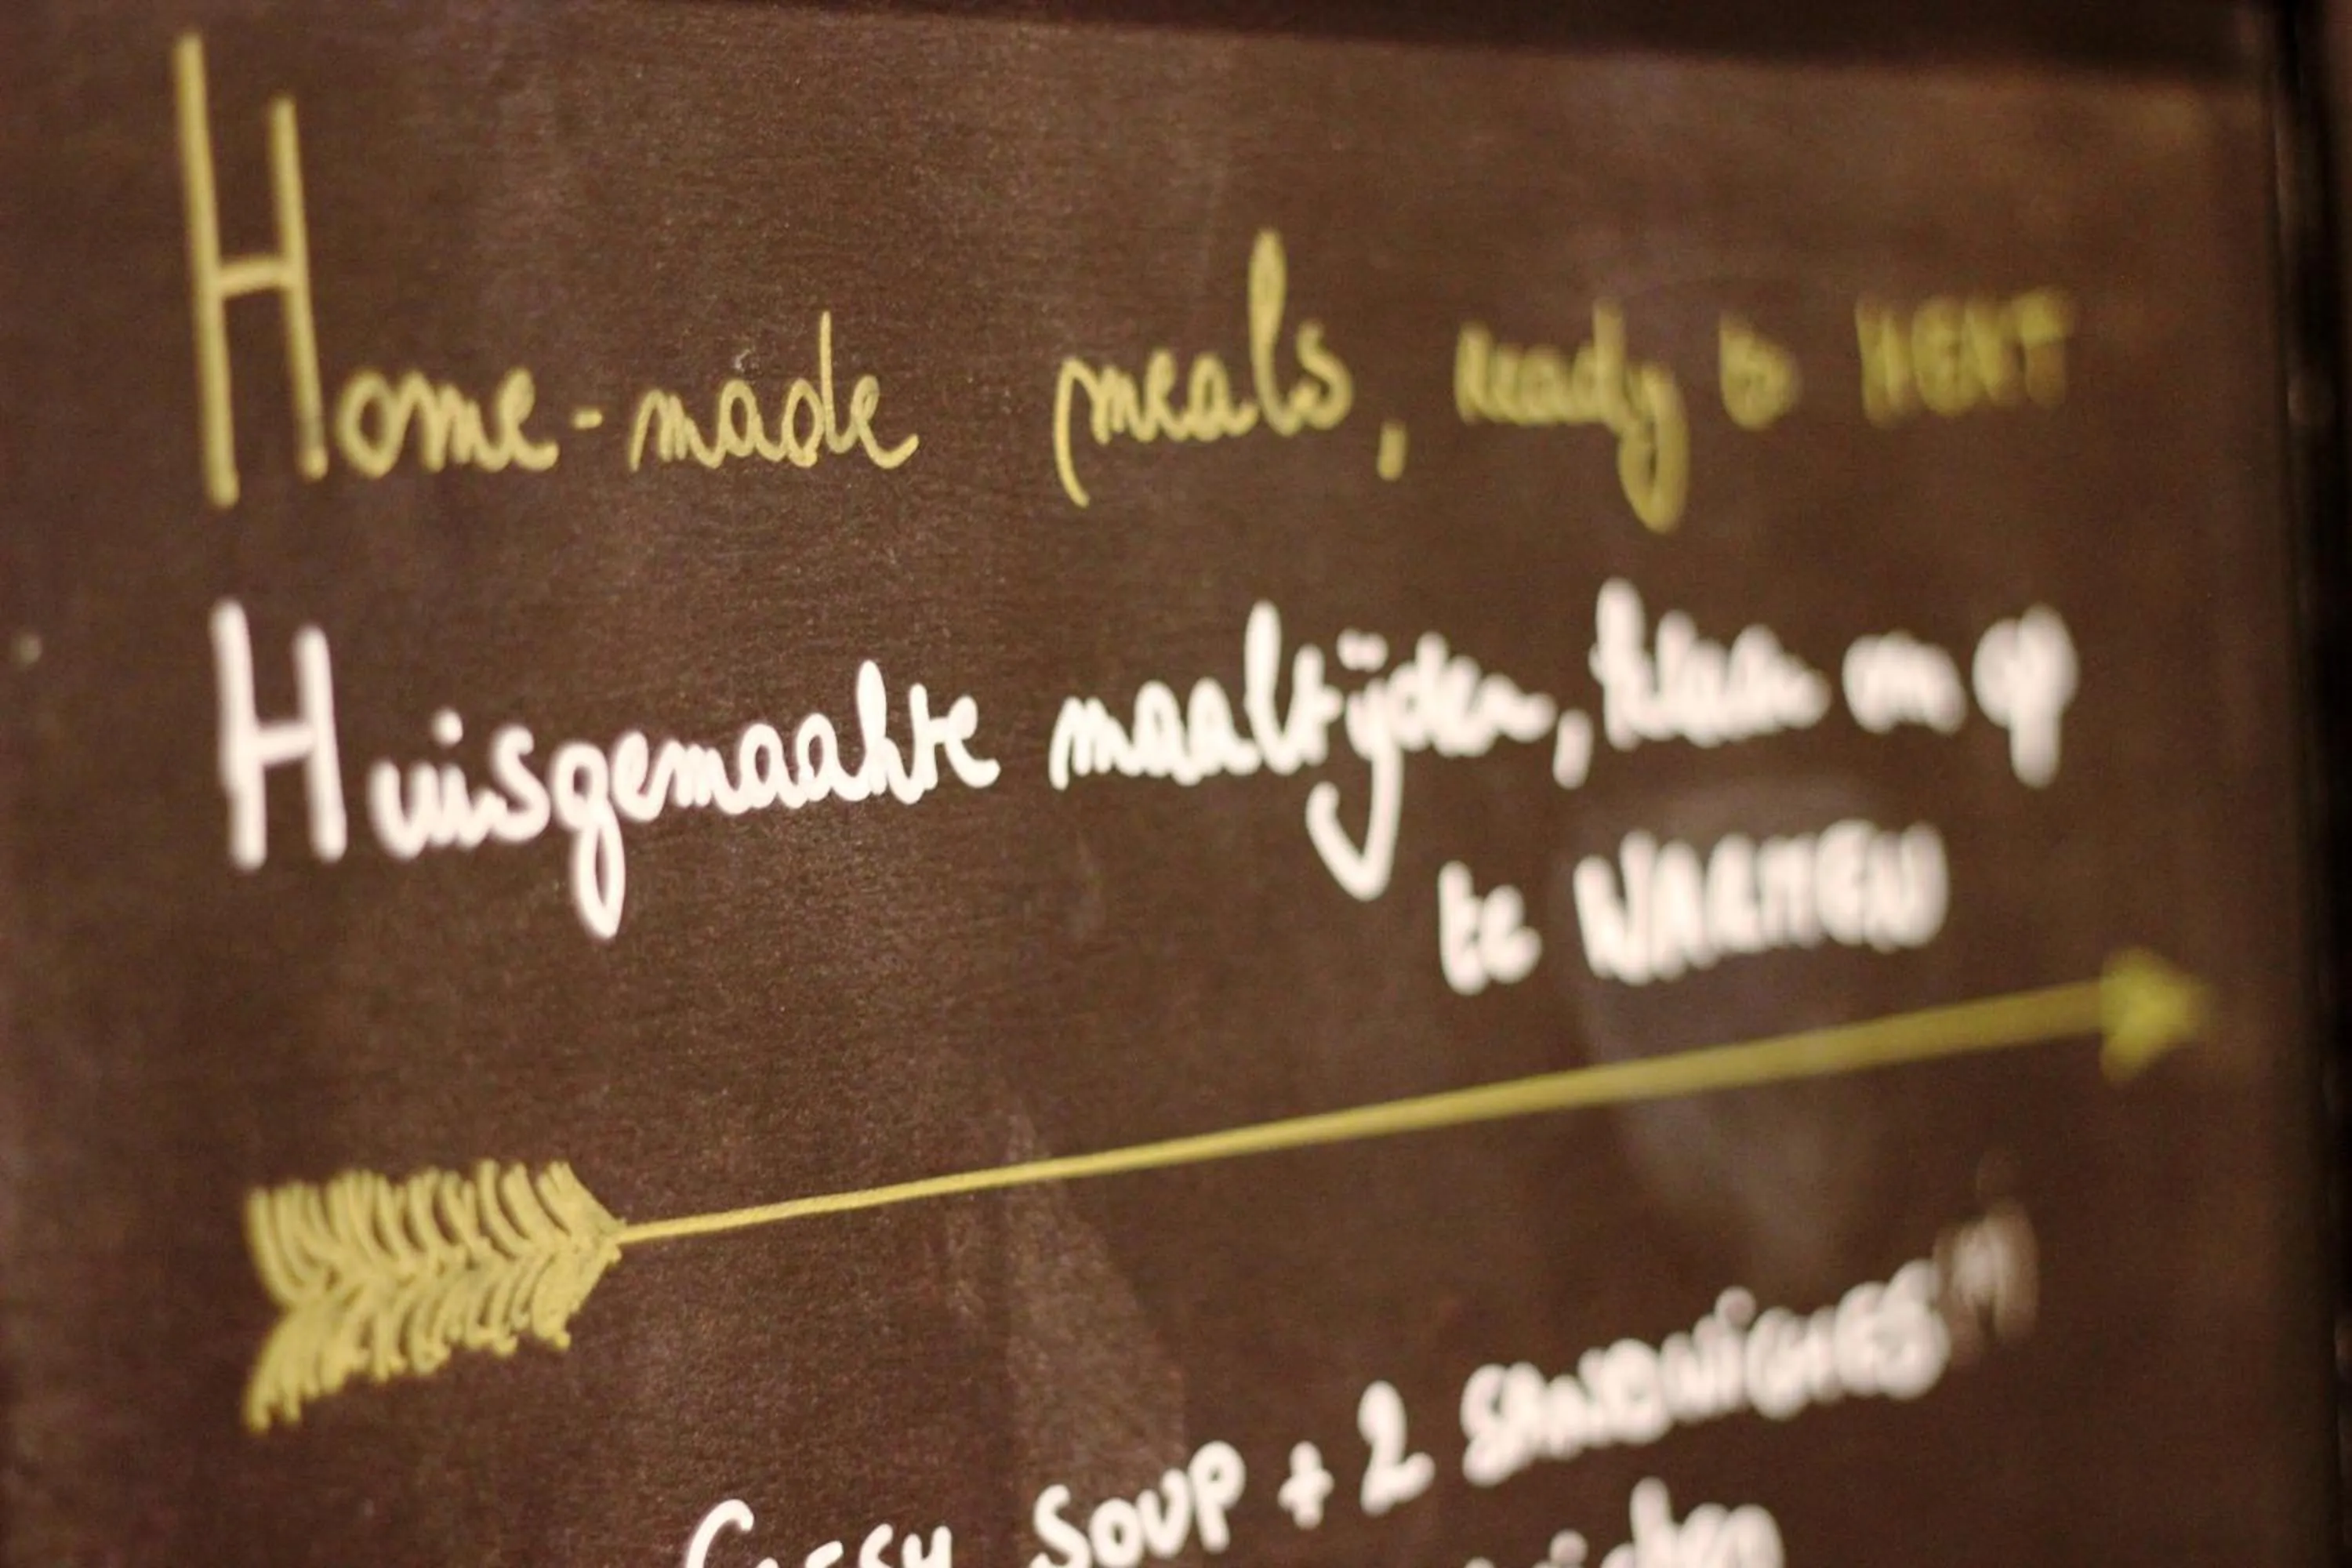 Home-made meals, ready to HEAT
Huisgemaakte maaltijden, klaar om op
te WARMEN
SOUP + 2 SANDWICHES